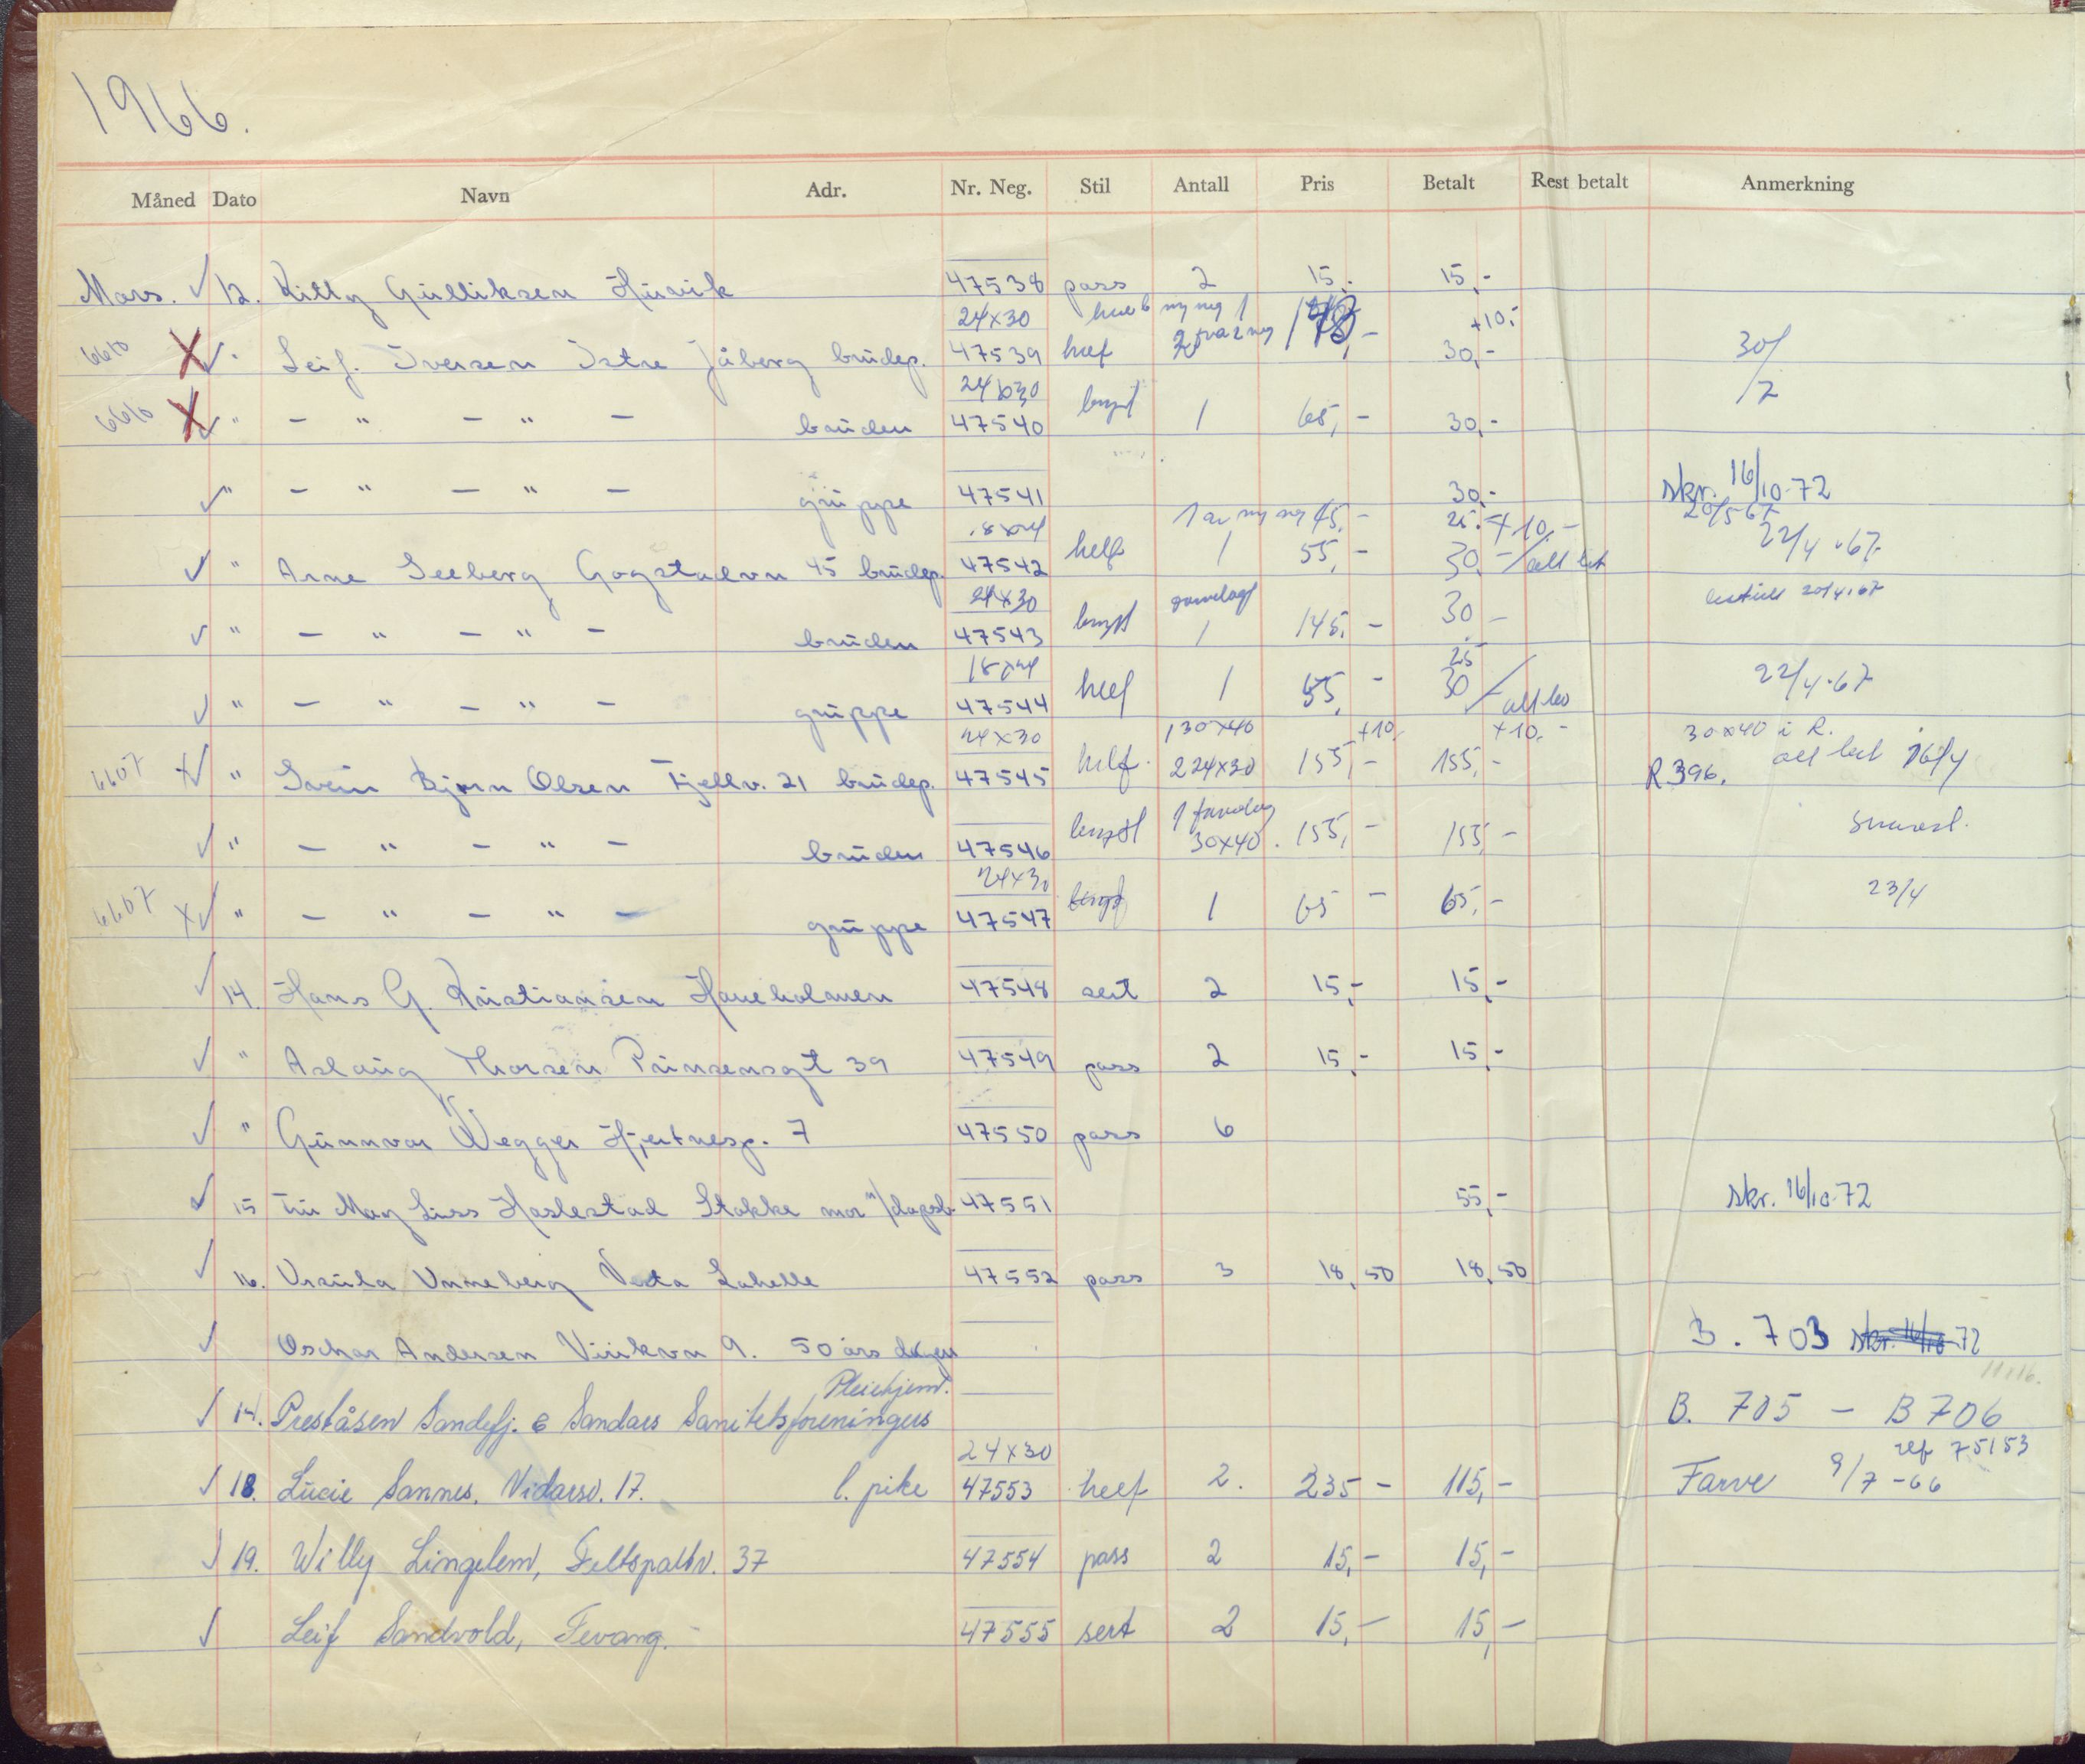 1966.
Måned Dato Navn Adr. Nr. Neg. Stil Antall Pris Betalt Rest betalt Anmerkning
Mars. ✓ 12. Kitty Gulliksen Husvik 47538 pass 2 15,- 15,-
24x30 ny neg 1 +10,-
6610 X ✓ " Leif. Iversen Istre Jåberg brudep. 47539 helf 30,- 30/7
24x30
6610 X ✓ " - " - " - bruden 47540 bryst 1 65,- 30,-
✓ " - " - " - gruppe 47541 30,- skr. 16/10-72
18x24 1 av ny neg 45,- 25,- + 10,- 20/5 67
✓ " Arne Seeberg Gogstadvn 45 brudep. 47542 helf 1 55,- 30,- / alt bet 22/4-67
24x30
✓ " - " - " - bruden 47543 bryst 1 145,- 30,- 20/4-67
18x24 25
✓ " - " - " - gruppe 47544 helf 1 55,- 30 / 22/4-67
24x30 1 30x40 +10,- +10,- 30x40 i R.
6607 X ✓ " Svein Bjørn Olsen Fjellv. 21 brudep. 47545 helf. 2 24x30 155,- 155,- R 396. alt bet 16/4
✓ " - " - " - bruden 47546 bryst 1 30x40. 155,- 155,-
24x30
6607 X ✓ " - " - " - gruppe 47547 bryst 1 65 - 65,- 23/4
✓ 14. Hans G. Kristiansen Haneholmen 47548 sert 2 15,- 15,-
✓ " Aslaug Thorsen Prinsensgt 39 47549 pass 2 15,- 15,-
✓ " Gunnvor Wegger Hjertnesp. 7 47550 pass 6
✓ 15 Fru May Liss Haslestad Stokke mor 47551 55,- skr. 16/10-72
✓ 16. Ursula Unneberg Vesta Lahelle 47552 pass 3 18,50 18,50
✓ Oschar Andersen Virikvn 9. 50 års dagen B. 703 skr. 16/10-72
Pleiehjem.
✓ 14. Preståsen Sandefj. & Sandars Sanitetsforeningers B. 705 - B 706
24x30 ref 75153
✓ 18. Lucie Sannes. Vidarsv. 17. l. pike 47553 helf 2. 235 - 115,- Farve 9/7 -66
✓ 19. Willy Lingelem, Feltspattv. 37 47554 pass 2 15,- 15,-
✓ Leif Sandvold, Fevang. 47555 sert 2 15,- 15,-